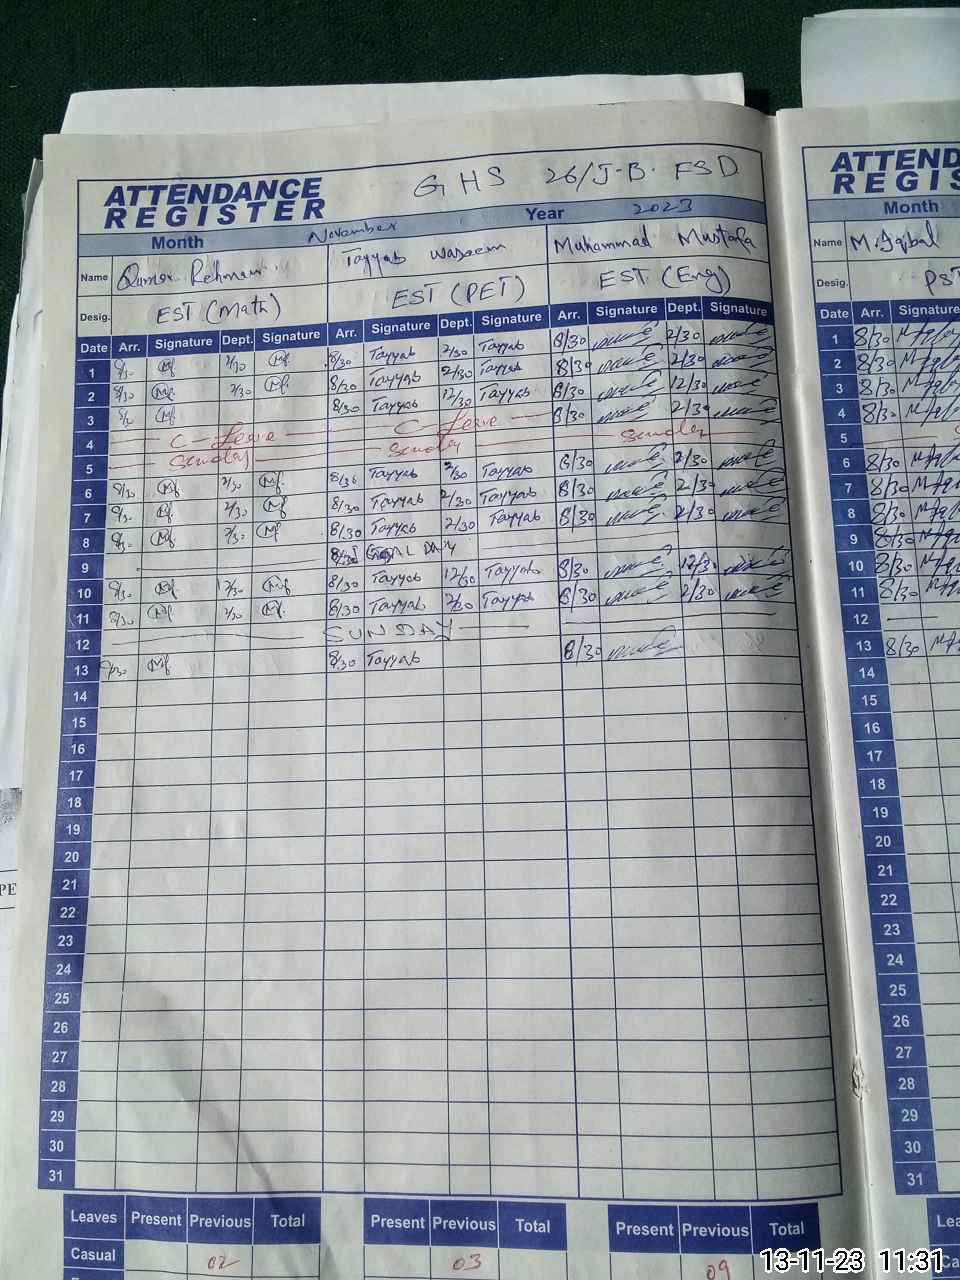 ATTENDANCE REGISTER GHS 26/J-B. FSD
Month November Year 2023
Name Qumer Rehman Tayyab Waseem Muhammad Mustafa
Desig. EST (Math) EST (PET) EST (Eng)
Date Arr. Signature Dept. Signature Arr. Signature Dept. Signature Arr. Signature Dept. Signature
1 8/30 2/30 8/30 Tayyab 2/30 Tayyab 8/30 2/30
2 8/30 2/30 8/30 Tayyab 2/30 Tayyab 8/30 2/30
3 8/30 Tayyab 12/30 Tayyab 8/30 12/30
4 C-Leave C-Leave 8/30 2/30
5 Sunday Sunday Sunday
6 8/30 2/30 8/30 Tayyab 2/30 Tayyab 8/30 2/30
7 8/30 2/30 8/30 Tayyab 2/30 Tayyab 8/30 2/30
8 8/30 2/30 8/30 Tayyab 2/30 Tayyab 8/30 2/30
9 DAY
10 8/30 12/30 8/30 Tayyab 12/30 Tayyab 8/30 12/30
11 8/30 2/30 8/30 Tayyab 2/30 Tayyab 8/30 2/30
12 SUNDAY
13 8/30 8/30 Tayyab 8/30
14
15
16
17
18
19
20
21
22
23
24
25
26
27
28
29
30
31
Leaves Present Previous Total Present Previous Total Present Previous Total
Casual 02 03 09
ATTEND
REGIS
Month
Name M. Iqbal
Desig. PST
Date Arr. Signature
1 8/30
2 8/30
3 8/30
4 8/30
5
6 8/30
7 8/30
8 8/30
9 8/30
10 8/30
11 8/30
12
13 8/30
14
15
16
17
18
19
20
21
22
23
24
25
26
27
28
29
30
31
Lea
Ca
PE
13-11-23 11:31